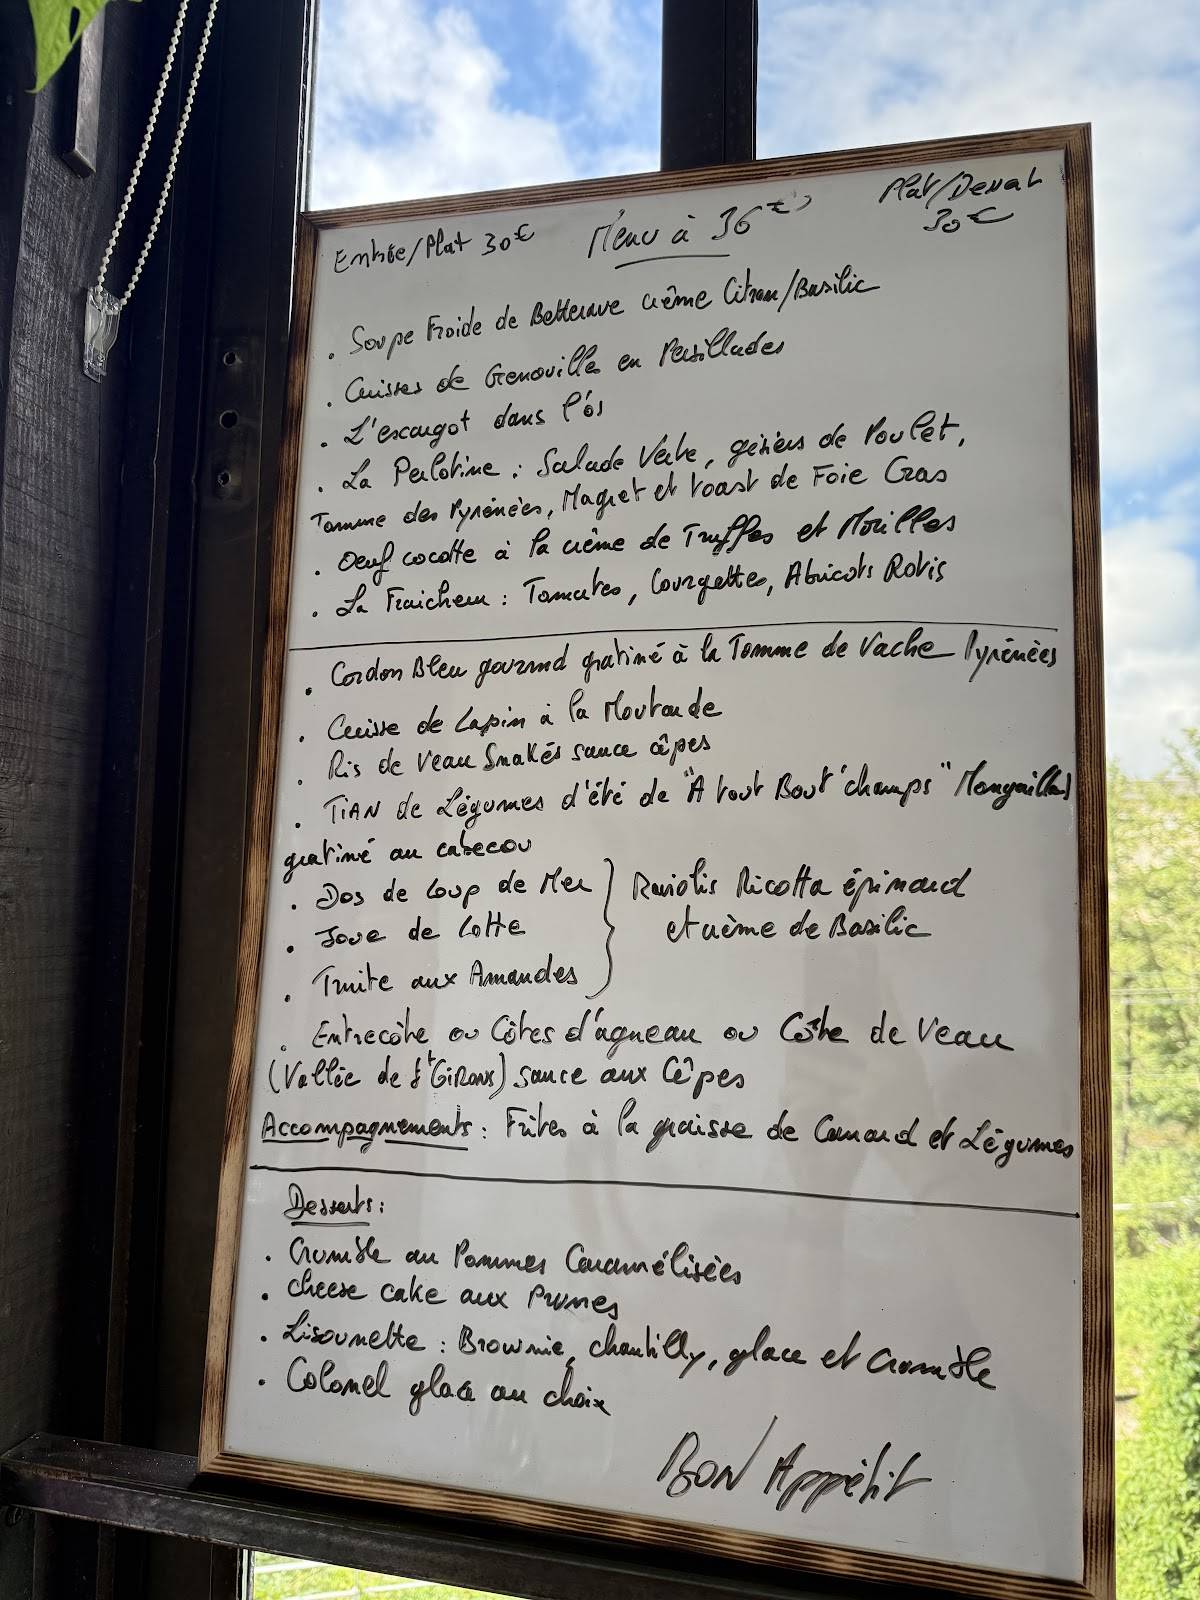 Entrée/Plat 30€
Menu à 36€
Plat/Dessert 30€
. Soupe Froide de Betterave crème Citron/Basilic
. Cuisses de Grenouilles en Persillades
. L'escargot dans l'os
. La Perlotine : Salade Verte, gésiers de Poulet,
Tomme des Pyrénées, Magret et toast de Foie Gras
. Oeuf cocotte à la crème de Truffes et Morilles
. La Fraicheur : Tomates, Courgettes, Abricots Rotis
. Cordon Bleu gourmand gratiné à la Tomme de Vache Pyrénées
. Cuisse de Lapin à la Moutarde
. Ris de Veau Snakés sauce cêpes
. TIAN de Légumes d'été de "A tout Bout'champs" Mongaillard
gratiné au cabecou
. Dos de Loup de Mer
. Joue de Lotte
. Truite aux Amandes
Raviolis Ricotta épinard
et crème de Basilic
. Entrecôte ou Côtes d'agneau ou Côte de Veau
(Vallée de St GIRONS) sauce aux Cêpes
Accompagnements : Frites à la graisse de Canard et Légumes
Desserts :
. Crumble au Pommes Caramélisées
. cheese cake aux Prunes
. Lisounette : Brownie, chantilly, glace et Crumble
. Colonel glace au choix
BON Appétit